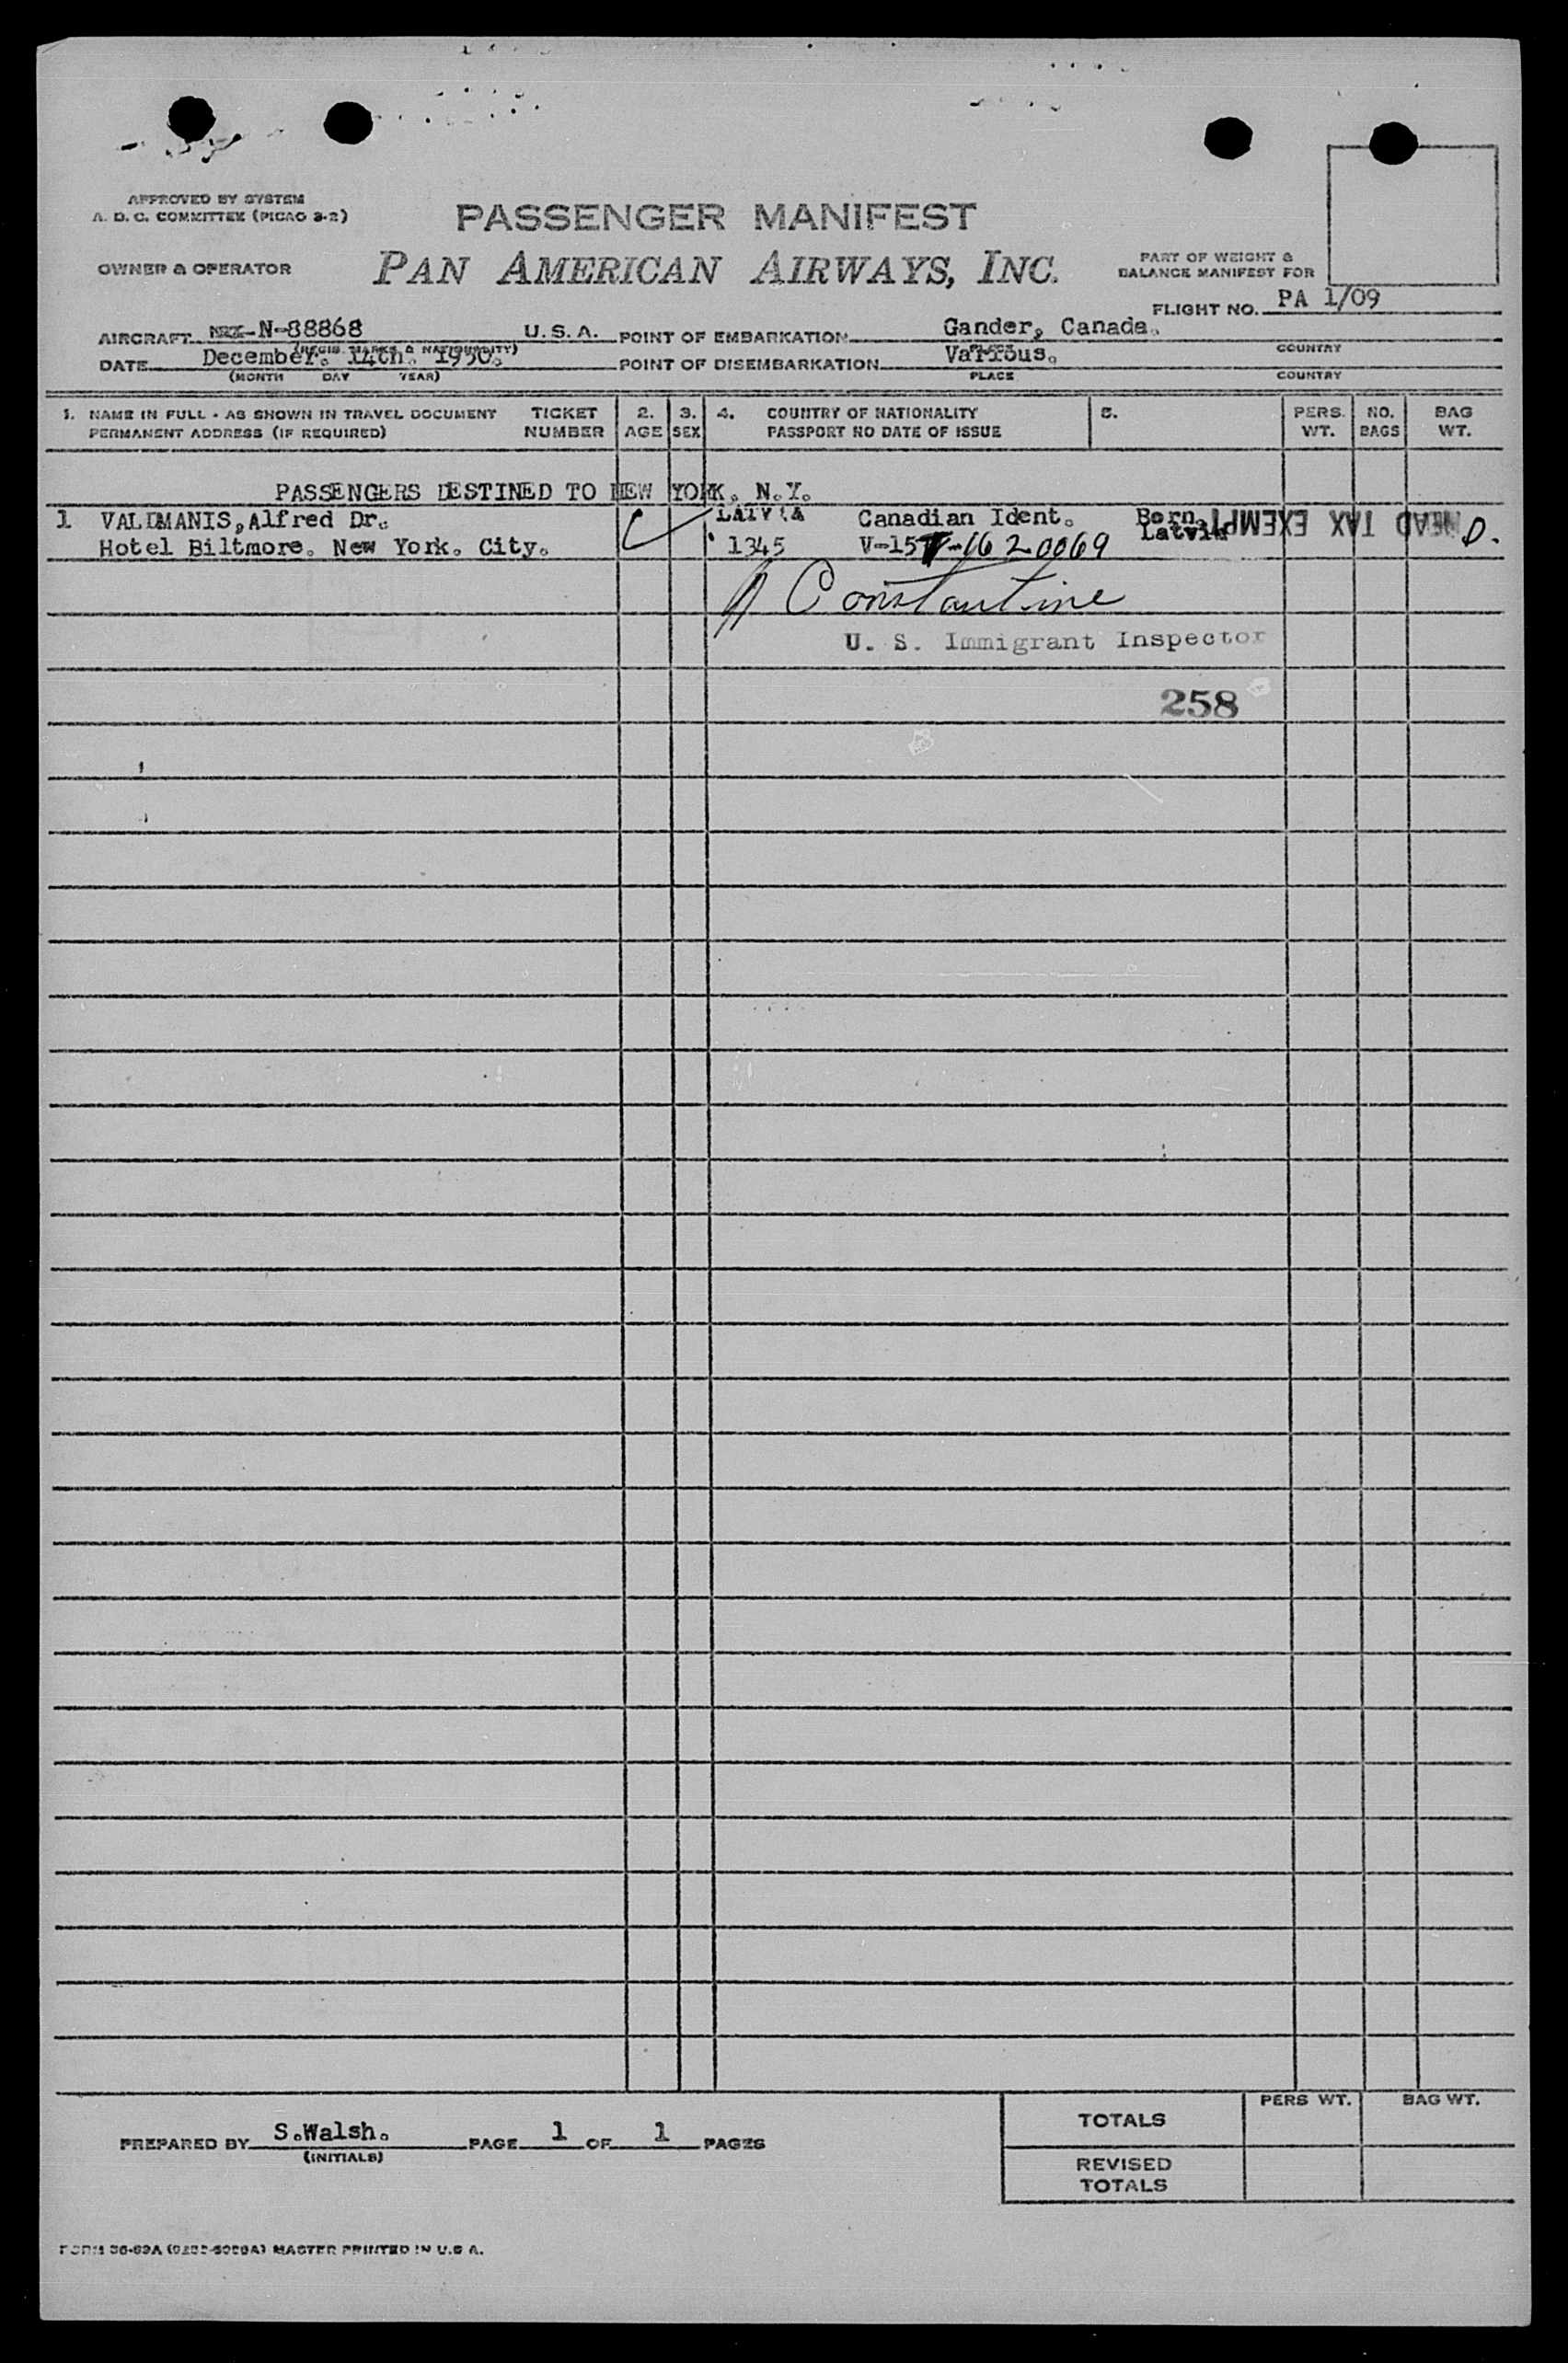 APPROVED BY SYSTEM
A. D. C. COMMITTEE (PICAO 3-2)
PASSENGER MANIFEST
OWNER & OPERATOR
PAN AMERICAN AIRWAYS, INC.
PART OF WEIGHT &
BALANCE MANIFEST FOR
FLIGHT NO. PA 1/09
AIRCRAFT N-88868 U.S.A. POINT OF EMBARKATION Gander, Canada.
(REGIS. MARKS & NATIONALITY) PLACE COUNTRY
DATE December. 14th. 1950. POINT OF DISEMBARKATION Various.
(MONTH DAY YEAR) PLACE COUNTRY
1. NAME IN FULL - AS SHOWN IN TRAVEL DOCUMENT TICKET 2. 3. 4. COUNTRY OF NATIONALITY 5. PERS. NO. BAG
PERMANENT ADDRESS (IF REQUIRED) NUMBER AGE SEX PASSPORT NO DATE OF ISSUE WT. BAGS WT.
PASSENGERS DESTINED TO NEW YORK. N.Y.
1 VALDMANIS,Alfred Dr. LATVIA Canadian Ident. Born. HEAD TAX EXEMPT
Hotel Biltmore. New York. City. 1345 V-15 V-1620069 Latvia D.
Constantine
U. S. Immigrant Inspector
258
PREPARED BY S.Walsh. PAGE 1 OF 1 PAGES
(INITIALS)
PERS WT. BAG WT.
TOTALS
REVISED
TOTALS
MASTER PRINTED IN U.S.A.